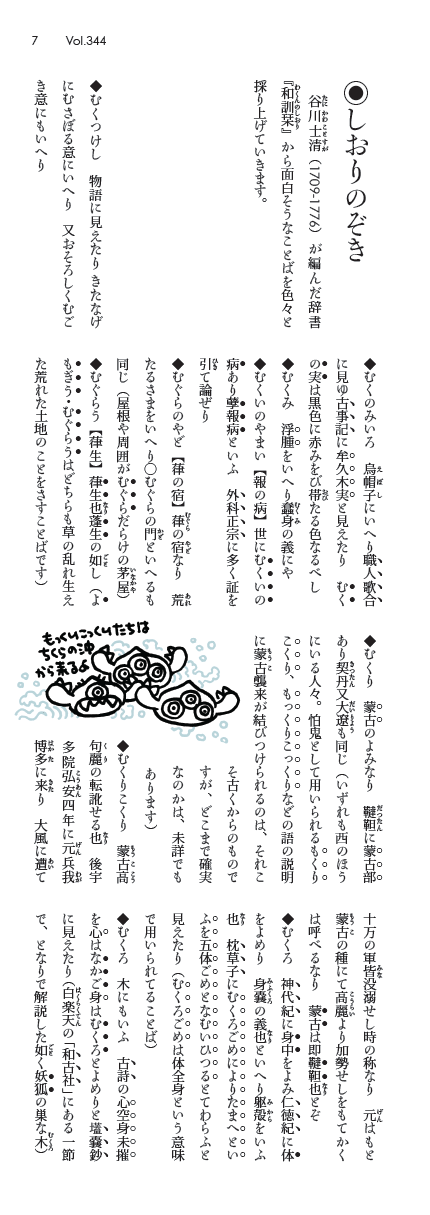 7 Vol.344
◉しおりのぞき
谷川士清（1709-1776）が編んだ辞書
『和訓栞』から面白そうなことばを色々と
採り上げていきます。
◆むくつけし　物語に見えたりきたなげ
にむさぼる意にいへり　又おそろしくむご
き意にもいへり
◆むくのみいろ　烏帽子にいへり職人歌合
に見ゆ古事記に牟久木実と見えたり　むく
の実は黒色に赤みをび帯たる色なるべし
◆むくみ　浮腫をいへり蠢身の義にや
◆むくいのやまい【報の病】世にむくいの
病あり孽報病といふ　外科正宗に多く証を
引て論ぜり
◆むぐらのやど【葎の宿】葎の宿なり　荒
たるさまをいへり○むぐらの門といへるも
同じ（屋根や周囲がむぐらだらけの茅屋）
◆むぐらう【葎生】葎生也蓬生の如し（よ
もぎう・むぐらうはどちらも草の乱れ生え
た荒れた土地のことをさすことばです）
◆むくり　蒙古のよみなり　韃靼に蒙古部
あり契丹又大遼も同じ（いずれも西のほう
にいる人々。怕鬼として用いられるもくり
こくり、もっくりこっくりなどの語の説明
に蒙古襲来が結びつけられるのは、それこ
そ古くからのもので
すが、どこまで確実
なのかは、未詳でも
あります）
もっくりこっくりたちは
ちくらの沖
から来るよ
◆むくりこくり　蒙古高
句麗の転訛せる也　後宇
多院弘安四年に元兵我
博多に来り　大風に遭て
十万の軍皆没溺せし時の称なり　元はもと
蒙古の種にて高麗より加勢せしをもてかく
は呼べるなり　蒙古は即韃靼也とぞ
◆むくろ　神代紀に身中をよみ仁徳紀に体
をよめり　身嚢の義也といへり躯殻をいふ
也　枕草子にむくろごめによりたまへとい
ふを五体ごめとなむいひつるとてわらふと
見えたり（むくろごめは体全身という意味
で用いられてることば）
◆むくろ　木にもいふ　古詩の心空身未摧
を心はなかご身はむくろとよめりと壒嚢鈔
に見えたり（白楽天の「和古社」にある一節
で、となりで解説した如く妖狐の巣な木）